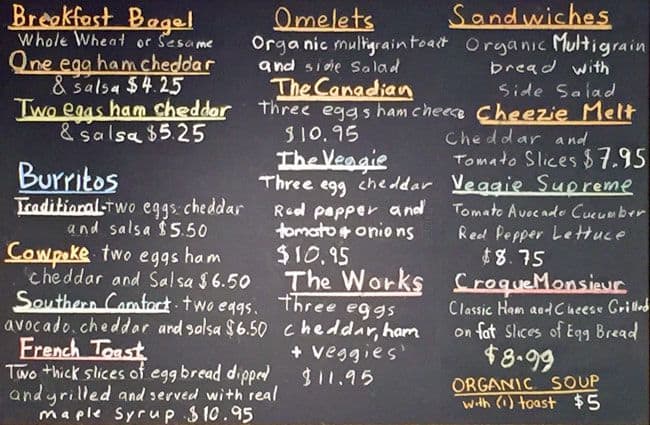 Breakfast Bagel
Whole Wheat or Sesame
One egg ham cheddar
& salsa $4.25
Two eggs ham cheddar
& salsa $5.25
Burritos
Traditional - Two eggs cheddar
and salsa $5.50
Cowpoke - two eggs ham
cheddar and Salsa $6.50
Southern Comfort - two eggs,
avocado, cheddar and salsa $6.50
French Toast
Two thick slices of egg bread dipped
and grilled and served with real
maple syrup $10.95
Omelets
Organic multigrain toast
and side Salad
The Canadian
three eggs ham cheese
$10.95
The Veggie
Three egg cheddar
Red pepper and
tomato + onions
$10.95
The Works
Three eggs
cheddar, ham
+ veggies
$11.95
Sandwiches
Organic Multigrain
bread with
Side Salad
Cheezie Melt
Cheddar and
Tomato Slices $7.95
Veggie Supreme
Tomato Avocado Cucumber
Red Pepper Lettuce
$8.75
Croque Monsieur
Classic Ham and Cheese Grilled
on fat Slices of Egg Bread
$8.99
ORGANIC SOUP
with (1) toast $5